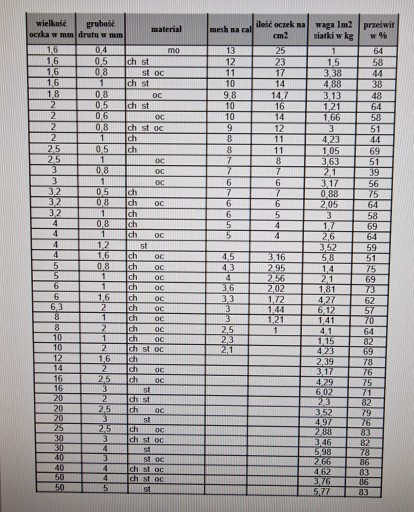 wielkość oczka w mm grubość drutu w mm materiał mesh na cal ilość oczek na cm2 waga 1m2 siatki w kg prześwit w %
1,6 0,4 mo 13 25 1 64
1,6 0,5 ch st 12 23 1,5 58
1,6 0,8 st oc 11 17 3,38 44
1,6 1 ch st 10 14 4,88 38
1,8 0,8 oc 9,8 14,7 3,13 48
2 0,5 ch st 10 16 1,21 64
2 0,6 oc 10 14 1,66 58
2 0,8 ch st oc 9 12 3 51
2 1 ch 8 11 4,23 44
2,5 0,5 ch 8 11 1,05 69
2,5 1 oc 7 8 3,63 51
3 0,8 oc 7 7 2,1 39
3 1 oc 6 6 3,17 56
3,2 0,5 ch 7 7 0,88 75
3,2 0,8 ch oc 6 6 2,05 64
3,2 1 ch 6 5 3 58
4 0,8 ch 5 4 1,7 69
4 1 ch oc 5 4 2,6 64
4 1,2 st 3,52 59
4 1,6 ch oc 4,5 3,16 5,8 51
5 0,8 ch oc 4,3 2,95 1,4 75
5 1 ch oc 4 2,56 2,1 69
6 1 ch oc 3,6 2,02 1,81 73
6 1,6 ch oc 3,3 1,72 4,27 62
6,3 2 ch oc 3 1,44 6,12 57
8 1 ch oc 3 1,21 1,41 70
8 2 ch oc 2,5 1 4,1 64
10 1 ch oc 2,3 1,15 82
10 2 ch st oc 2,1 4,23 69
12 1,6 ch 2,39 78
14 2 ch oc 3,17 76
16 2,5 ch oc 4,29 75
16 3 st 6,02 71
20 2 ch st 2,3 82
20 2,5 ch oc 3,52 79
20 3 st 4,97 76
25 2,5 ch oc 2,88 83
30 3 ch st oc 3,46 82
30 4 st 5,98 78
40 3 st oc 2,66 86
40 4 ch st oc 4,62 83
50 4 ch st oc 3,76 86
50 5 st 5,77 83